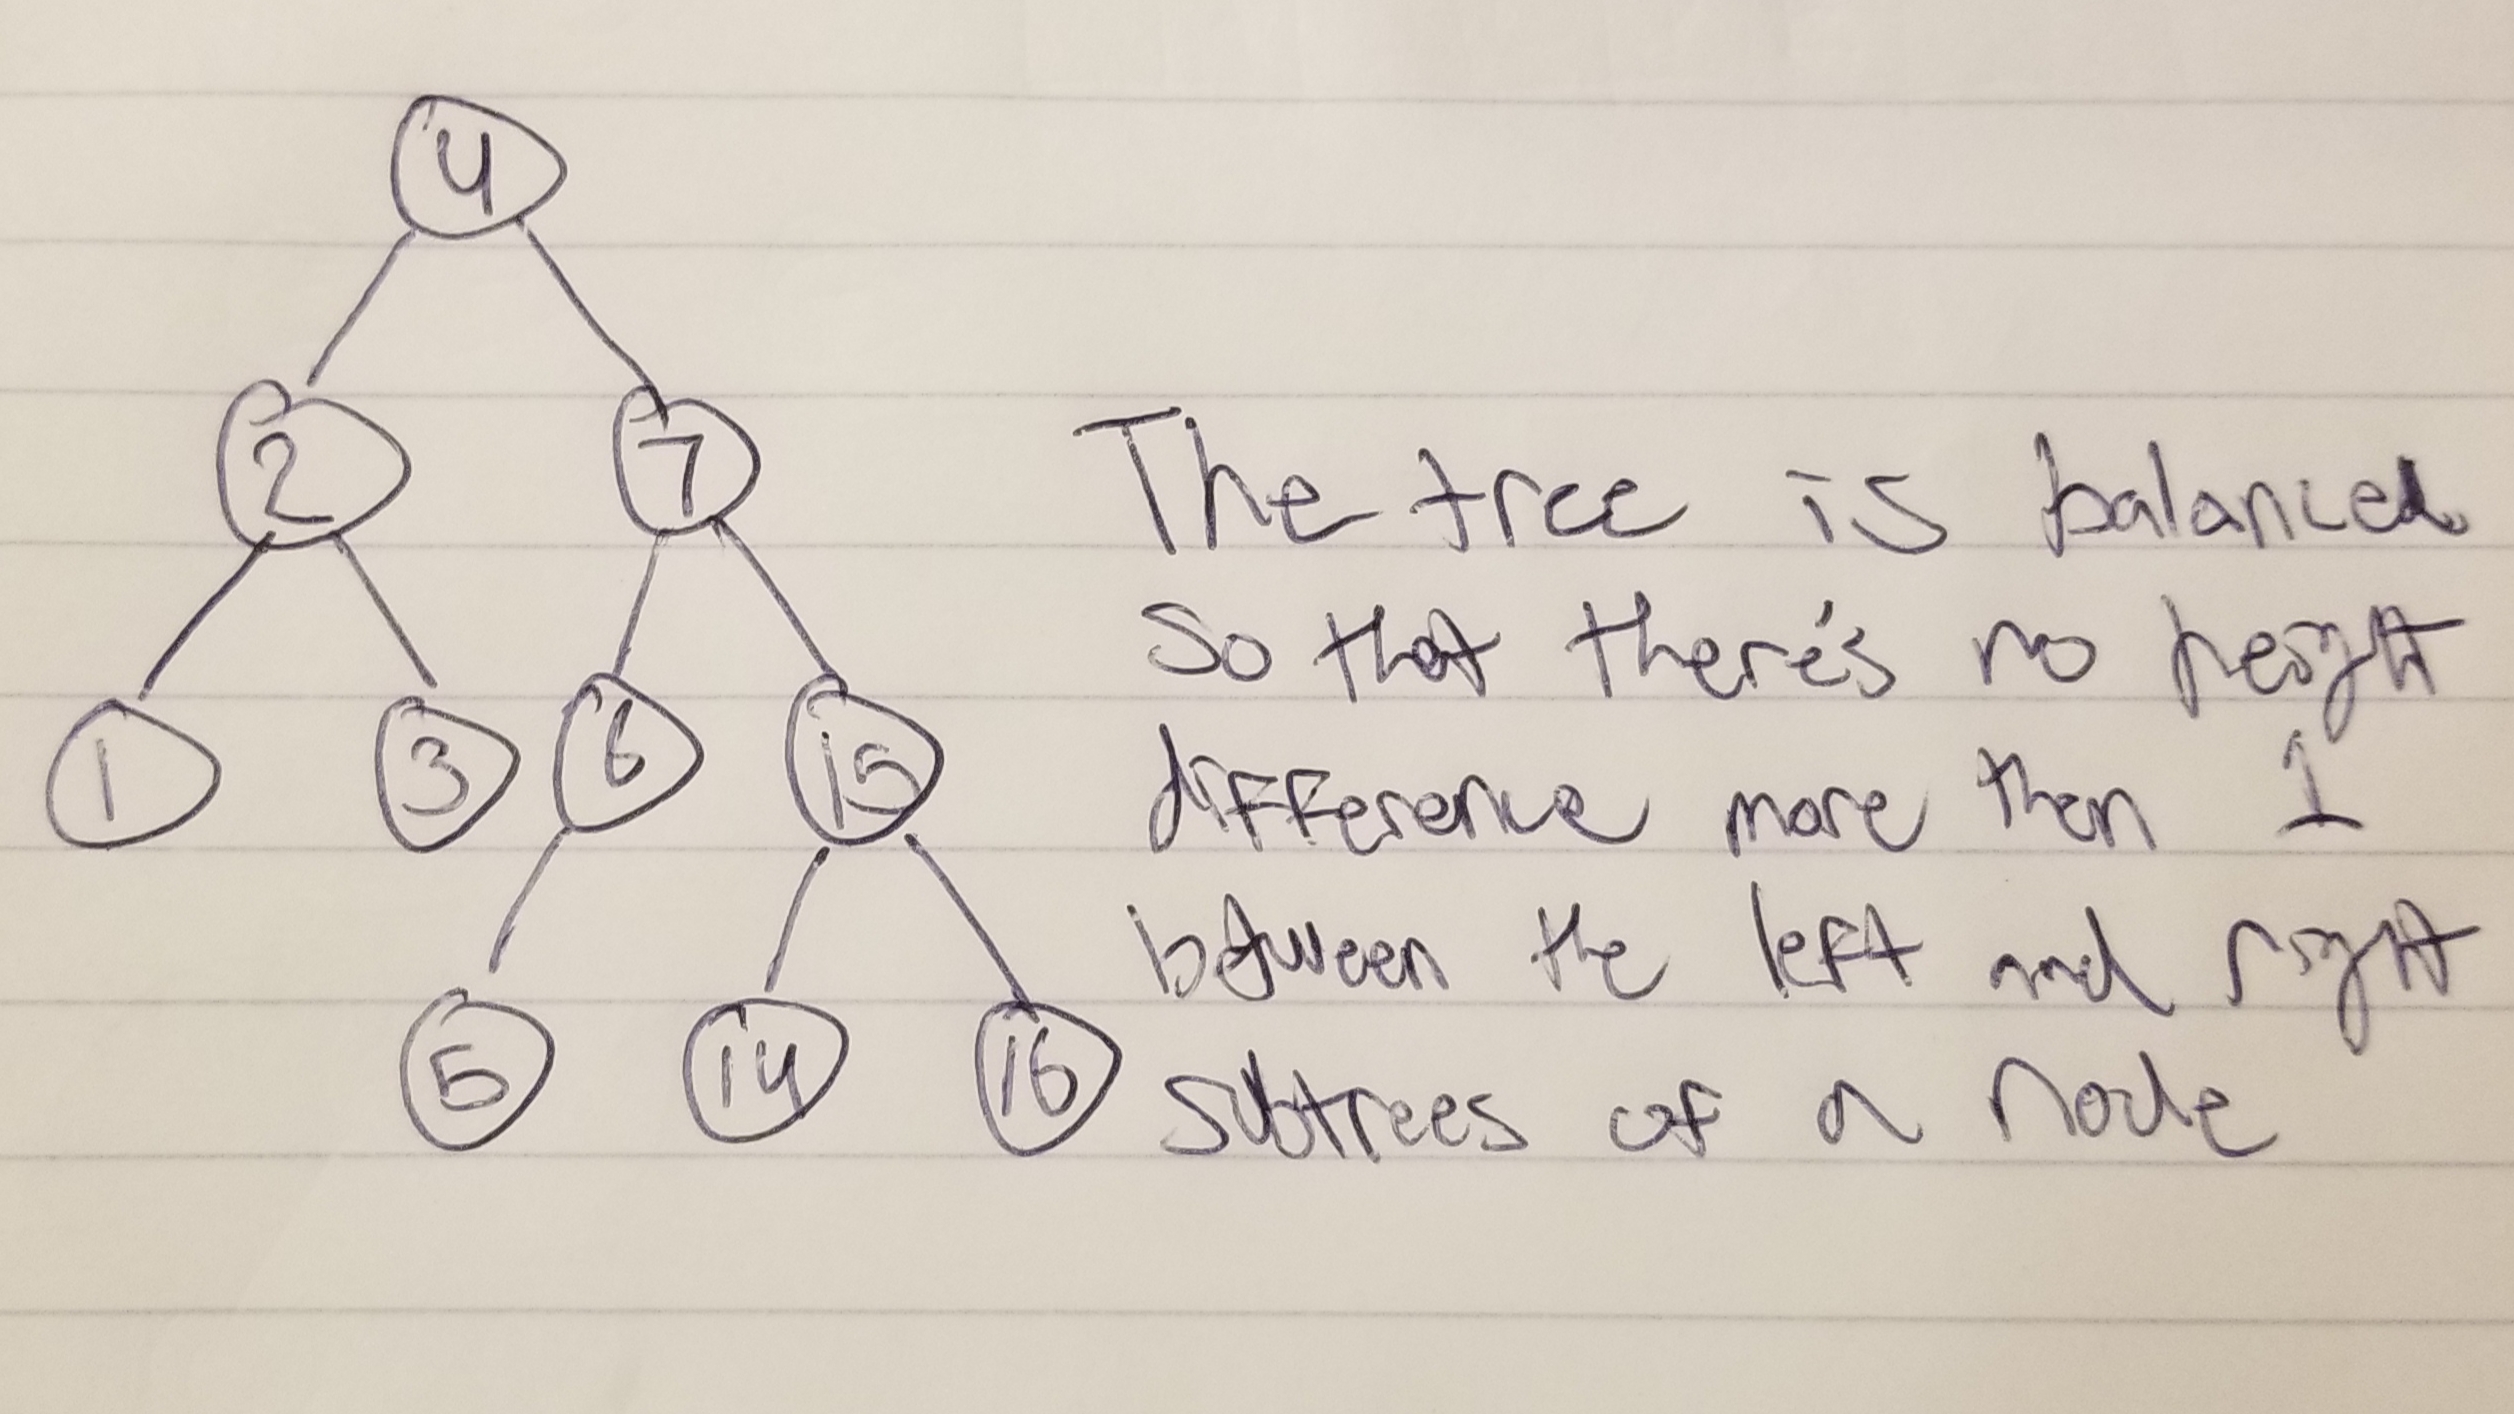 4
2 7
1 3 6 15
5 14 16
The tree is balanced
so that there's no height
difference more then 1
between the left and right
subtrees of a node